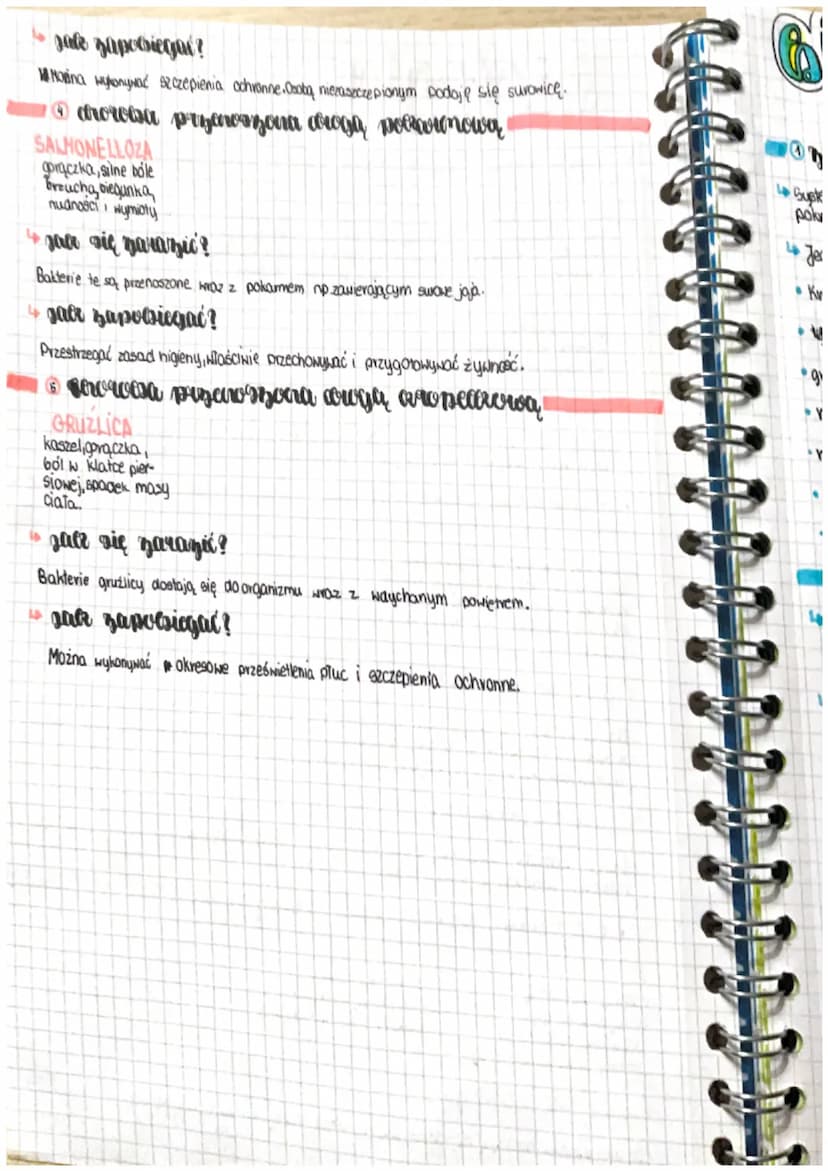 ↳ jak zapobiegać?
Można wykonywać szczepienia ochronne. Osobą nieraszczepionym podaję się surowicę.
④ choroba przenoszona drogą pokarmową
SALMONELLOZA
gorączka, silne bóle
brzucha, biegunka,
nudności i wymioty
↳ jak się zarazić?
Bakterie te są przenoszone wraz z pokarmem np. zawierającym surowe jaja.
↳ jak zapobiegać?
Przestrzegać zasad higieny, właściwie przechowywać i przygotowywać żywność.
⑤ choroba przenoszona drogą kropelkową
GRUŹLICA
kaszel, gorączka,
ból w klatce pier-
siowej, spadek masy
ciała.
↳ jak się zarazić?
Bakterie gruźlicy dostają się do organizmu wraz z wdychanym powietrzem.
↳ jak zapobiegać?
Można wykonywać okresowe prześwietlenia płuc i szczepienia ochronne.
①